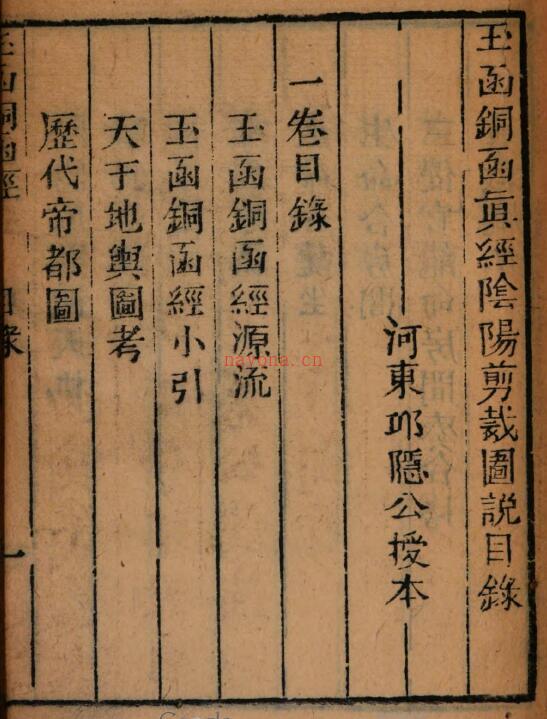 玉函銅函眞經陰陽剪裁圖說目錄
河東邱隱公授本
一卷目錄
玉函銅函經源流
玉函銅函經小引
天于地輿圖考
歷代帝都圖
玉函銅函經 目錄 一
nayona.cn